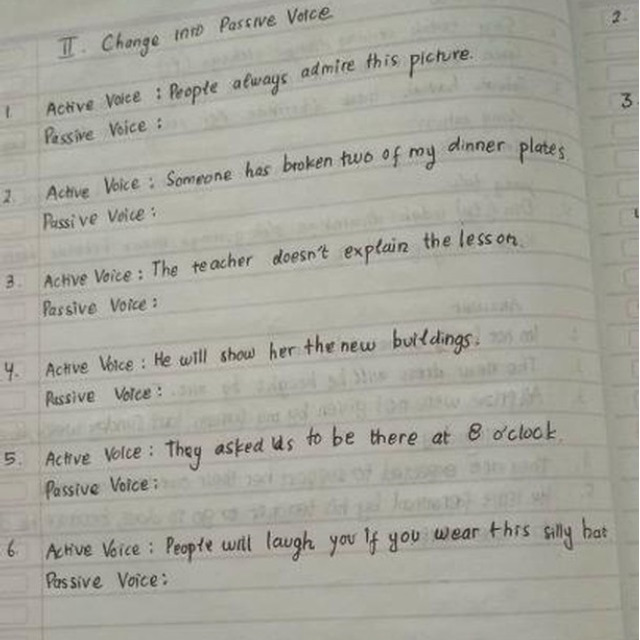 II. Change into Passive Voice
2.
1 Active Voice : People always admire this picture.
3.
Passive Voice :
2. Active Voice : Someone has broken two of my dinner plates
Passive Voice :
3. Active Voice : The teacher doesn't explain the lesson.
Passive Voice :
4. Active Voice : He will show her the new buildings.
Passive Voice :
5. Active Voice : They asked us to be there at 8 o'clock.
Passive Voice :
6. Active Voice : People will laugh you if you wear this silly hat
Passive Voice :